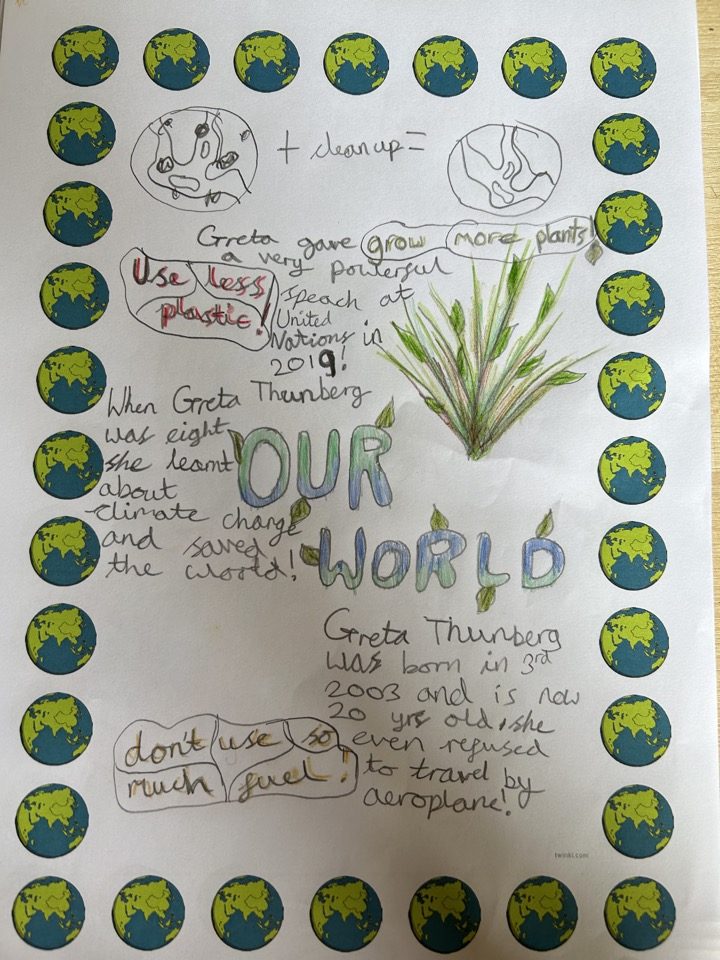 + clean up =
grow more plants!
Greta gave
a very powerful
speach at
United
Nations in
2019!
Use less
plastic!
When Greta Thunberg
was eight
she learnt
about
climate change
and saved
the world!
OUR
WORLD
Greta Thunberg
was born in 3rd
2003 and is now
20 yrs old, she
even refused
to travel by
aeroplane!
don't use so
much fuel!
twinkl.com